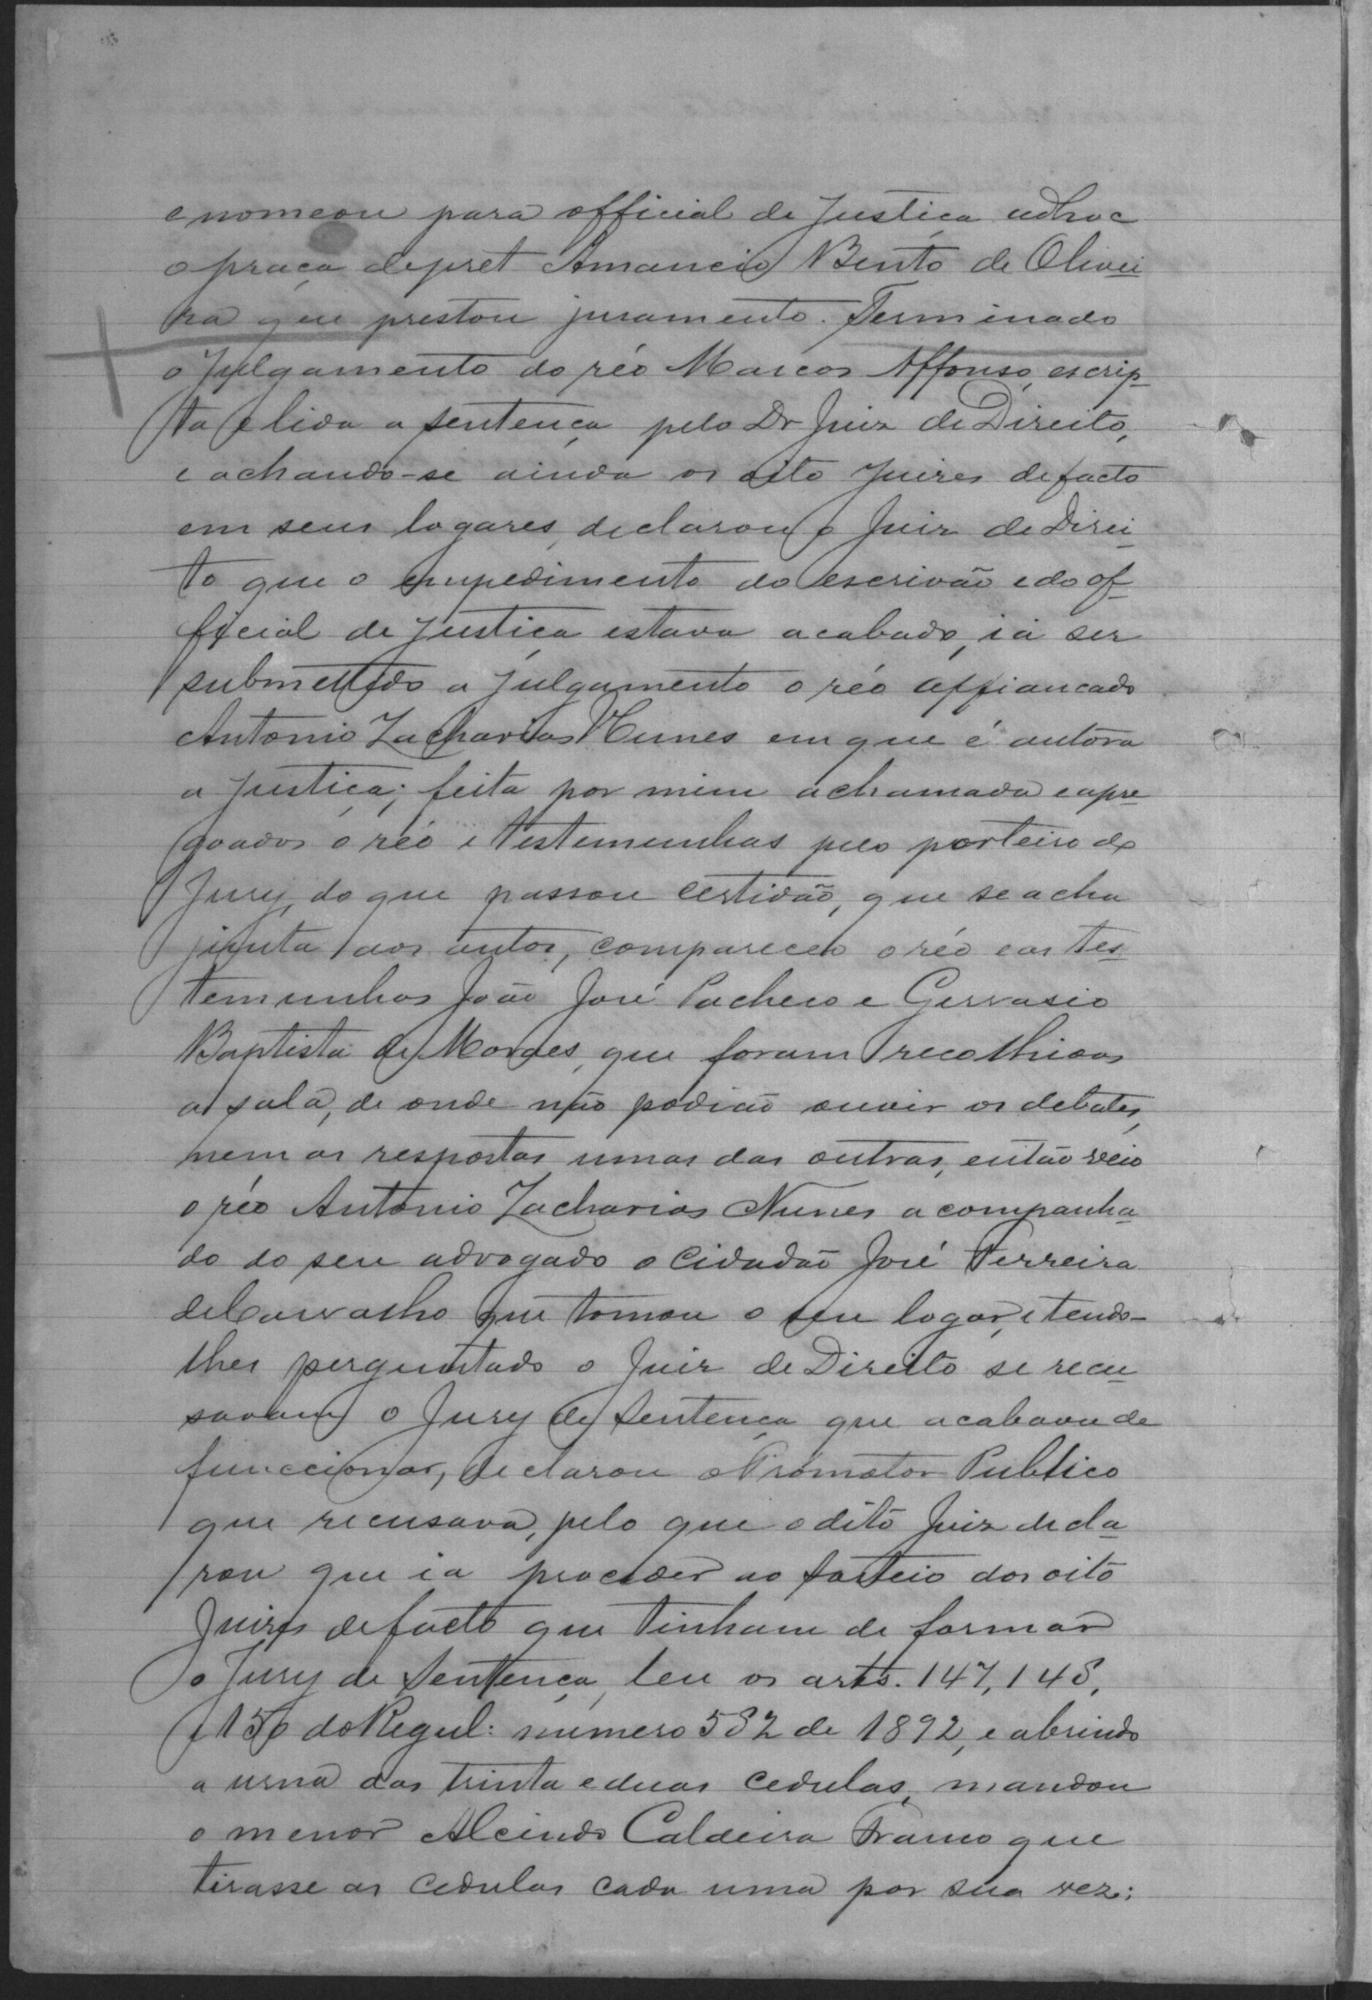 e nomeou para official de Justiça adhoc
o praça depret Amancio Bento de Olivei
ra que prestou juramento. Terminado
o julgamento do réo Marcos Affonso, escrip
ta e lida a sentença pelo Dr Juiz de Direito,
e achando-se ainda os oito Juizes defacto
em seus logares, declarou o Juiz de Direi
to que o empedimento do escrivão e do of
ficial de justiça estava acabado, ia ser
submettido a julgamento o réo affiancado
Antonio Zacharias Nunes em que é autora
a Justiça; feita por mim a chamada e apre
goados o réo e testemunhas pelo porteiro do
Jury, do que passou certidão, que se acha
junta aos autos, compareceu o réo e as tes
temunhas João José Pacheco e Gervasio
Baptista de Moraes, que foram recolhidas
a sala, de onde não podião ouvir os debates,
nem as respostas umas das outras, então veio
o réo Antonio Zacharias Nunes acompanha
do do seu advogado o cidadão José Ferreira
de Carvalho que tomou o seu logar, e tendo-
lhes perguntado o Juiz de Direito se recu
savam o Jury de Sentença que acabava de
funccionar, declarou o Promotor Publico
que recusava, pelo que o dito Juiz decla
rou que ia proceder ao sorteio dos oito
Juizes defacto que tinham de formar
o Jury de Sentença, leu os arts. 147, 148,
e 150 do Regul: numero 582 de 1892, e abrindo
a urna das trinta e duas cedulas, mandou
o menor Alcindo Caldeira que
tirasse as cedulas cada uma por sua vez: